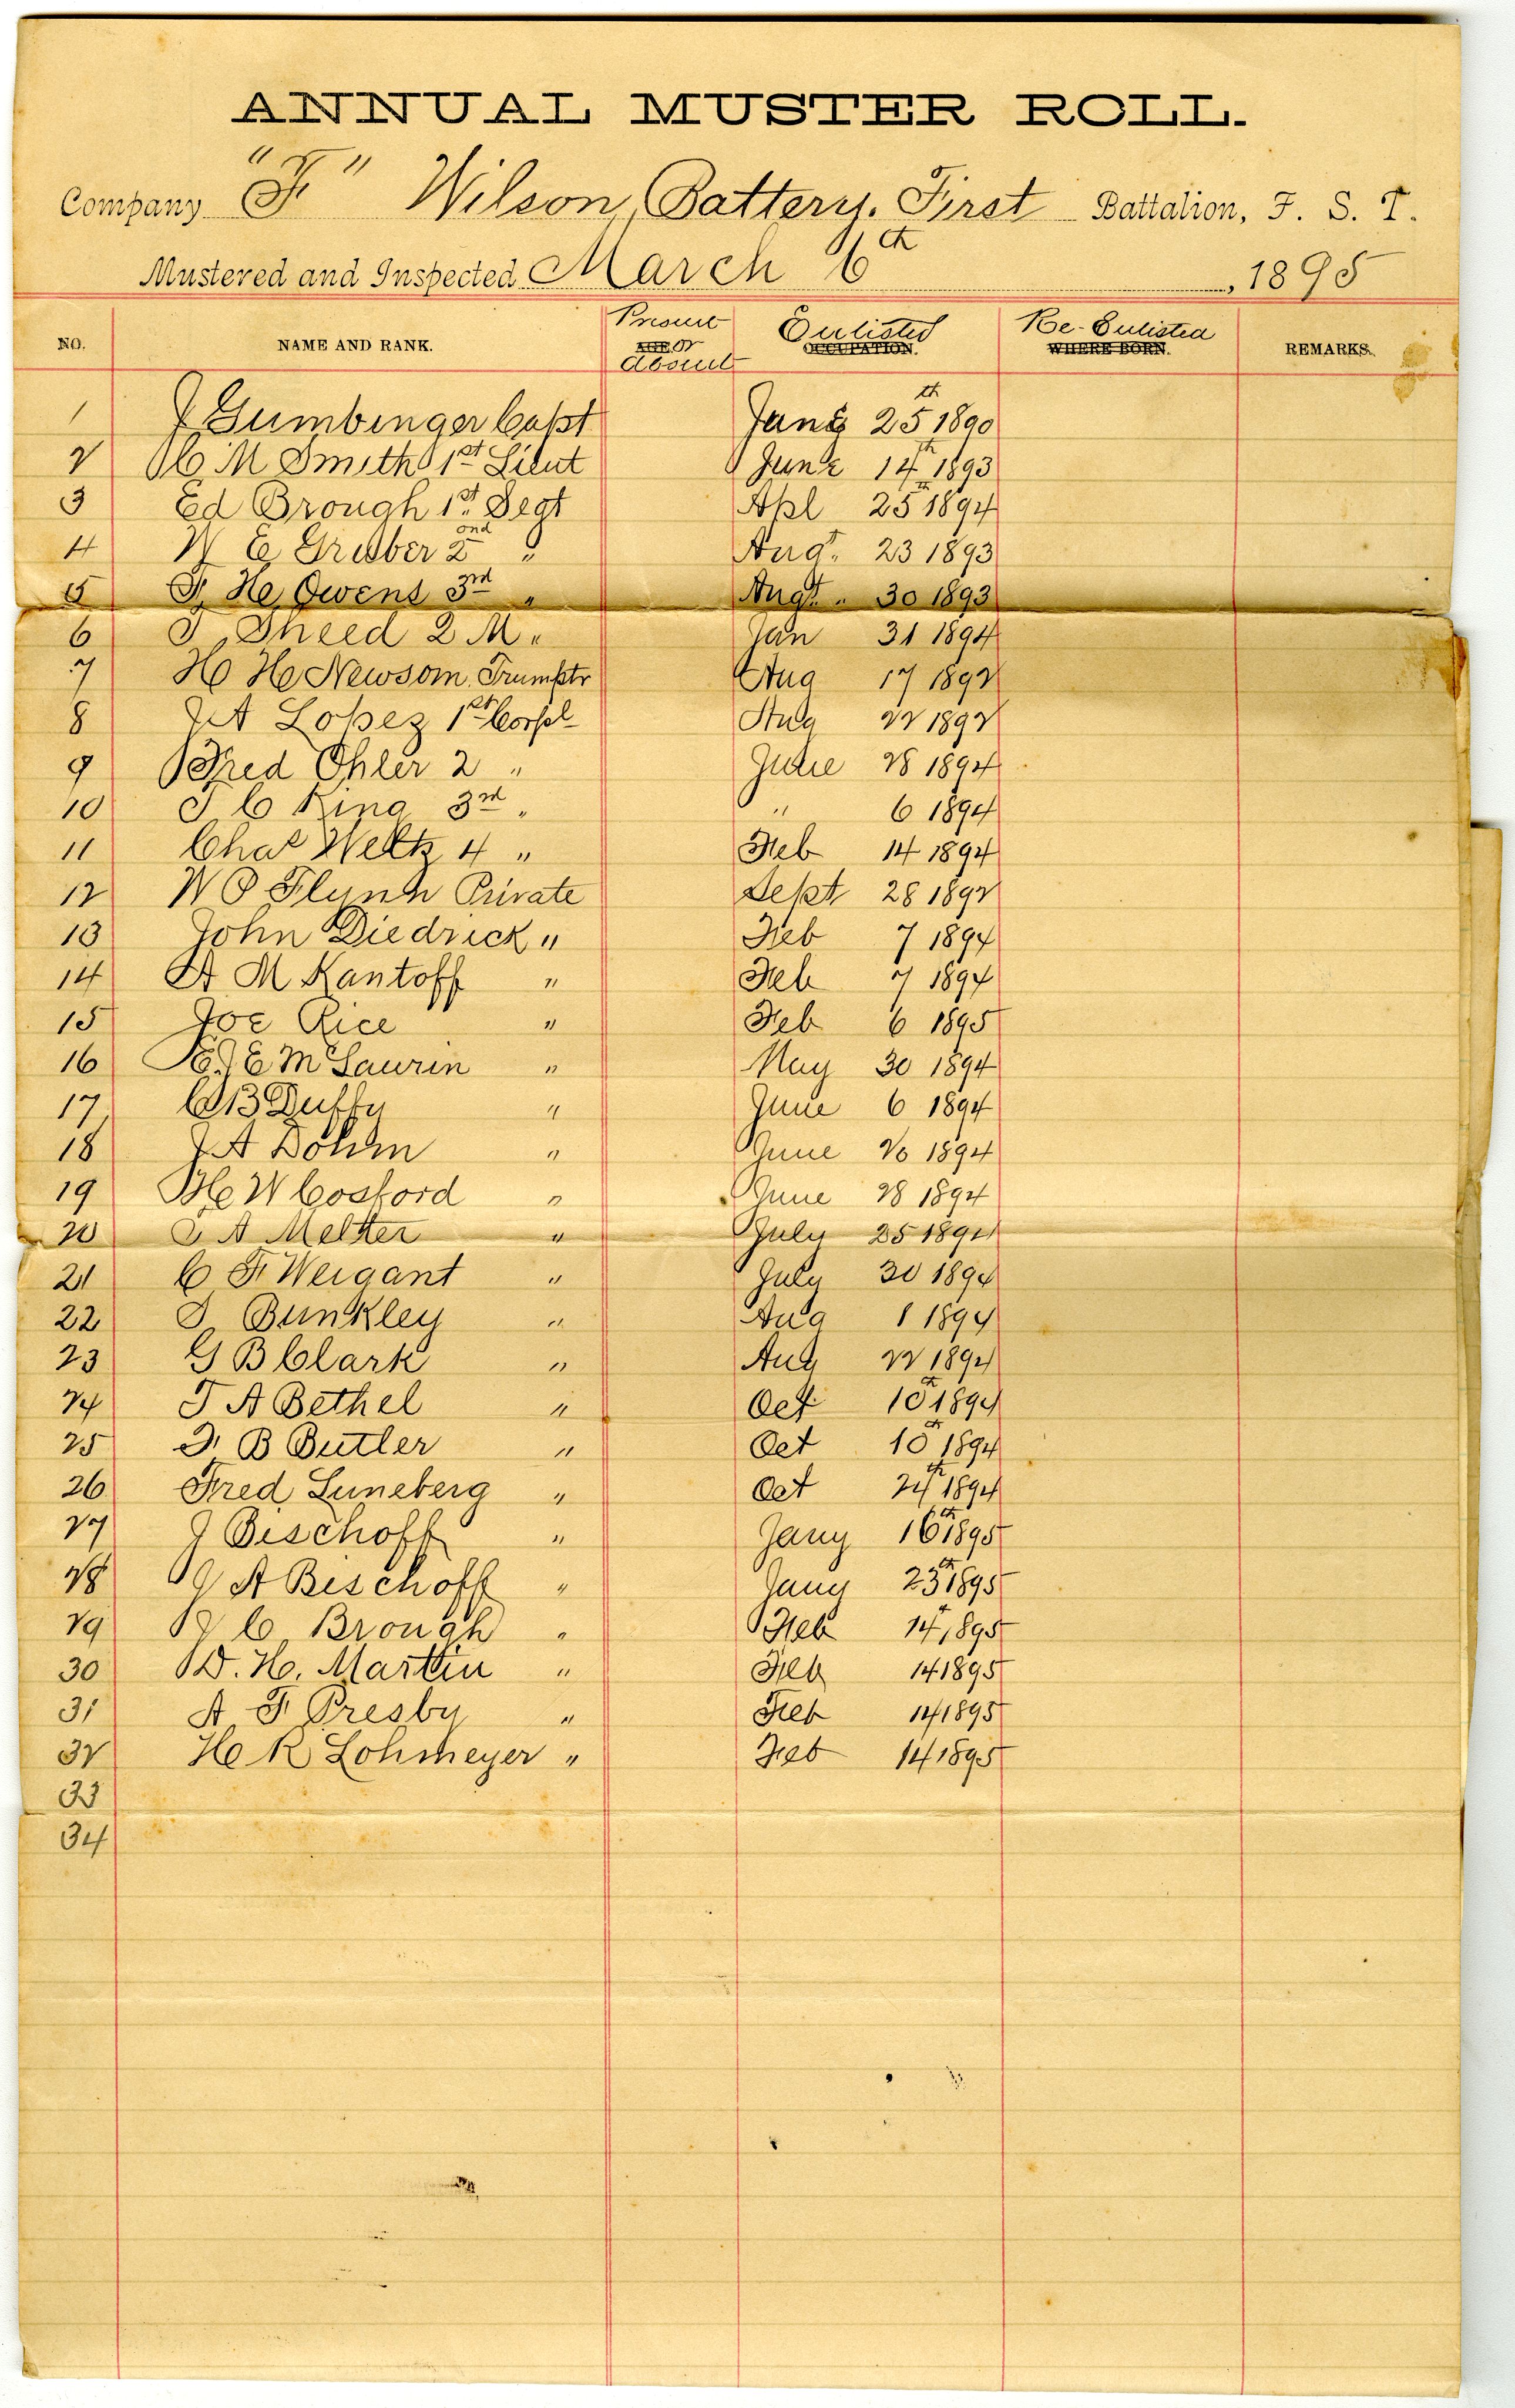 ANNUAL MUSTER ROLL.
Company "F" Wilson Battery. First Battalion, F. S. T.
Mustered and Inspected March 6th, 1895
NO. NAME AND RANK. Present AGE or Absent Enlisted OCCUPATION. Re-Enlisted WHERE BORN. REMARKS.
1 J Gumbinger Capt June 25th 1890
2 C M Smith 1st Lieut June 14th 1893
3 Ed Brough 1st Segt Apl 25th 1894
4 W E Gruber 2ond " Augt. 23 1893
5 F. H Owens 3rd " Augt. " 30 1893
6 T. Sheed Q M " Jan 31 1894
7 H H Newsom Trumptr Aug 17 1892
8 J A Lopez 1st Corpl Aug 22 1892
9 Fred Ohler 2 " June 28 1894
10 T C King 3rd " " 6 1894
11 Chas Weltz 4 " Feb 14 1894
12 W O Flynn Private Sept 28 1892
13 John Diedrick " Feb 7 1894
14 A M Kantoff " Feb 7 1894
15 Joe Rice " Feb 6 1895
16 E. J E McLaurin " May 30 1894
17 C B Duffy " June 6 1894
18 J A Dohm " June 20 1894
19 H W Cosford " June 28 1894
20 A Melter " July 25 1894
21 C F Weigant " July 30 1894
22 Bunkley " Aug 1 1894
23 G B Clark " Aug 22 1894
24 T A Bethel " Oct 10th 1894
25 F. B Butler " Oct 10th 1894
26 Fred Luneberg " Oct 24th 1894
27 J Bischoff " Jany 16th 1895
28 J A Bischoff " Jany 23th 1895
29 J C Brough " Feb 14 1895
30 D. H. Martin " Feb 14 1895
31 A F Presby " Feb 14 1895
32 H R Lohmeyer " Feb 14 1895
33
34